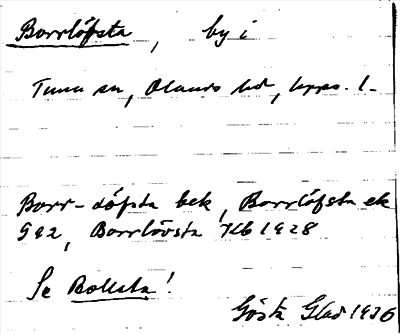 Borrlöfsta, by i
Tuna sn, Olands hd, Upps. l.
Borr-löfsta bek, Borrlöfsta ek
942, Borrlövsta Jb 1928
Se Bollsta!
Gösta Glad 1936